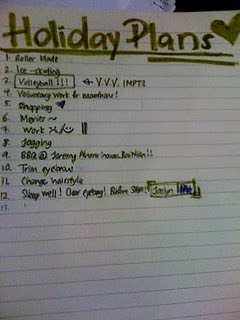 Holiday Plans
1. Roller blade
2. Ice-skating
3. Volleyball!!! ← V.V.V. IMPT!
4. Voluntary Work
5. Shopping
6. Movies ~
7. Work
8. Jogging
9. BBQ @ Jeremy house
10. Trim eyebrow
11. Change hairstyle
12. Sleep well! Clear eyebag! Before
13.